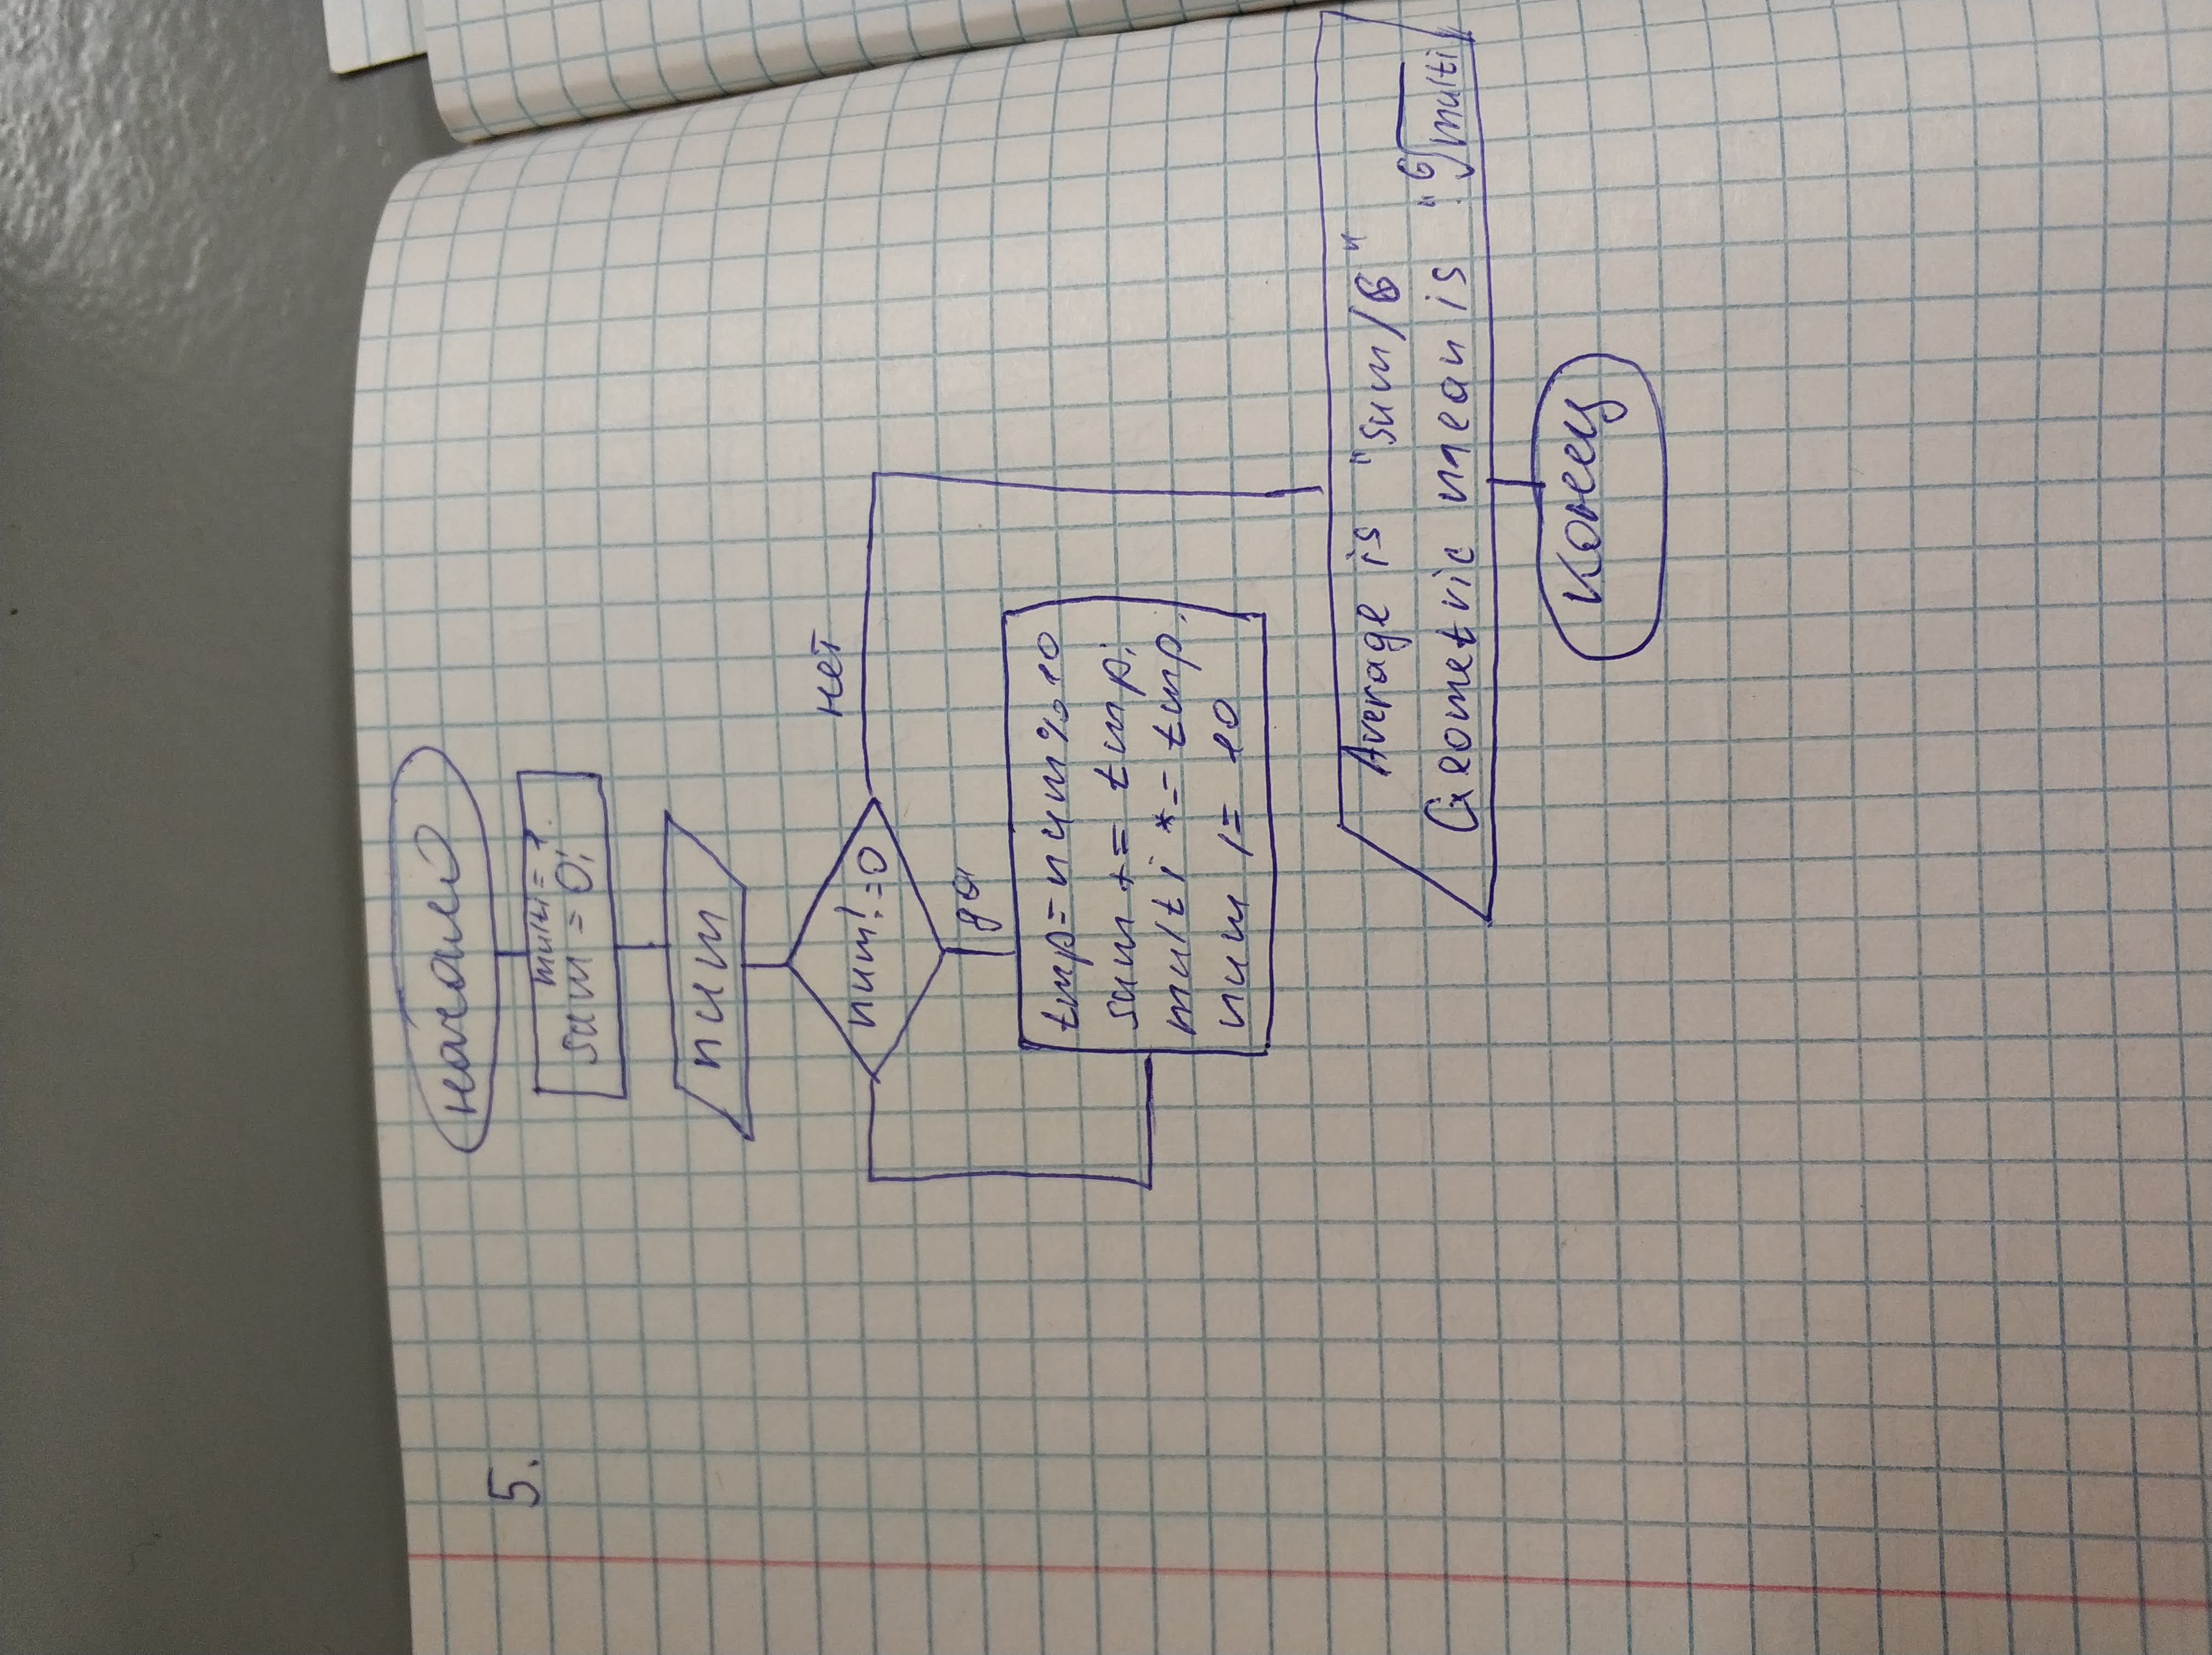 5.
начало
multi = 1.
Sum = 0;
num
num! = 0
нет
да
tmp = num % 10
sum += tmp;
multi *= tmp.
num /= 10
Average is "Sum/6"
Geometric mean is : "⁶√multi
Конец